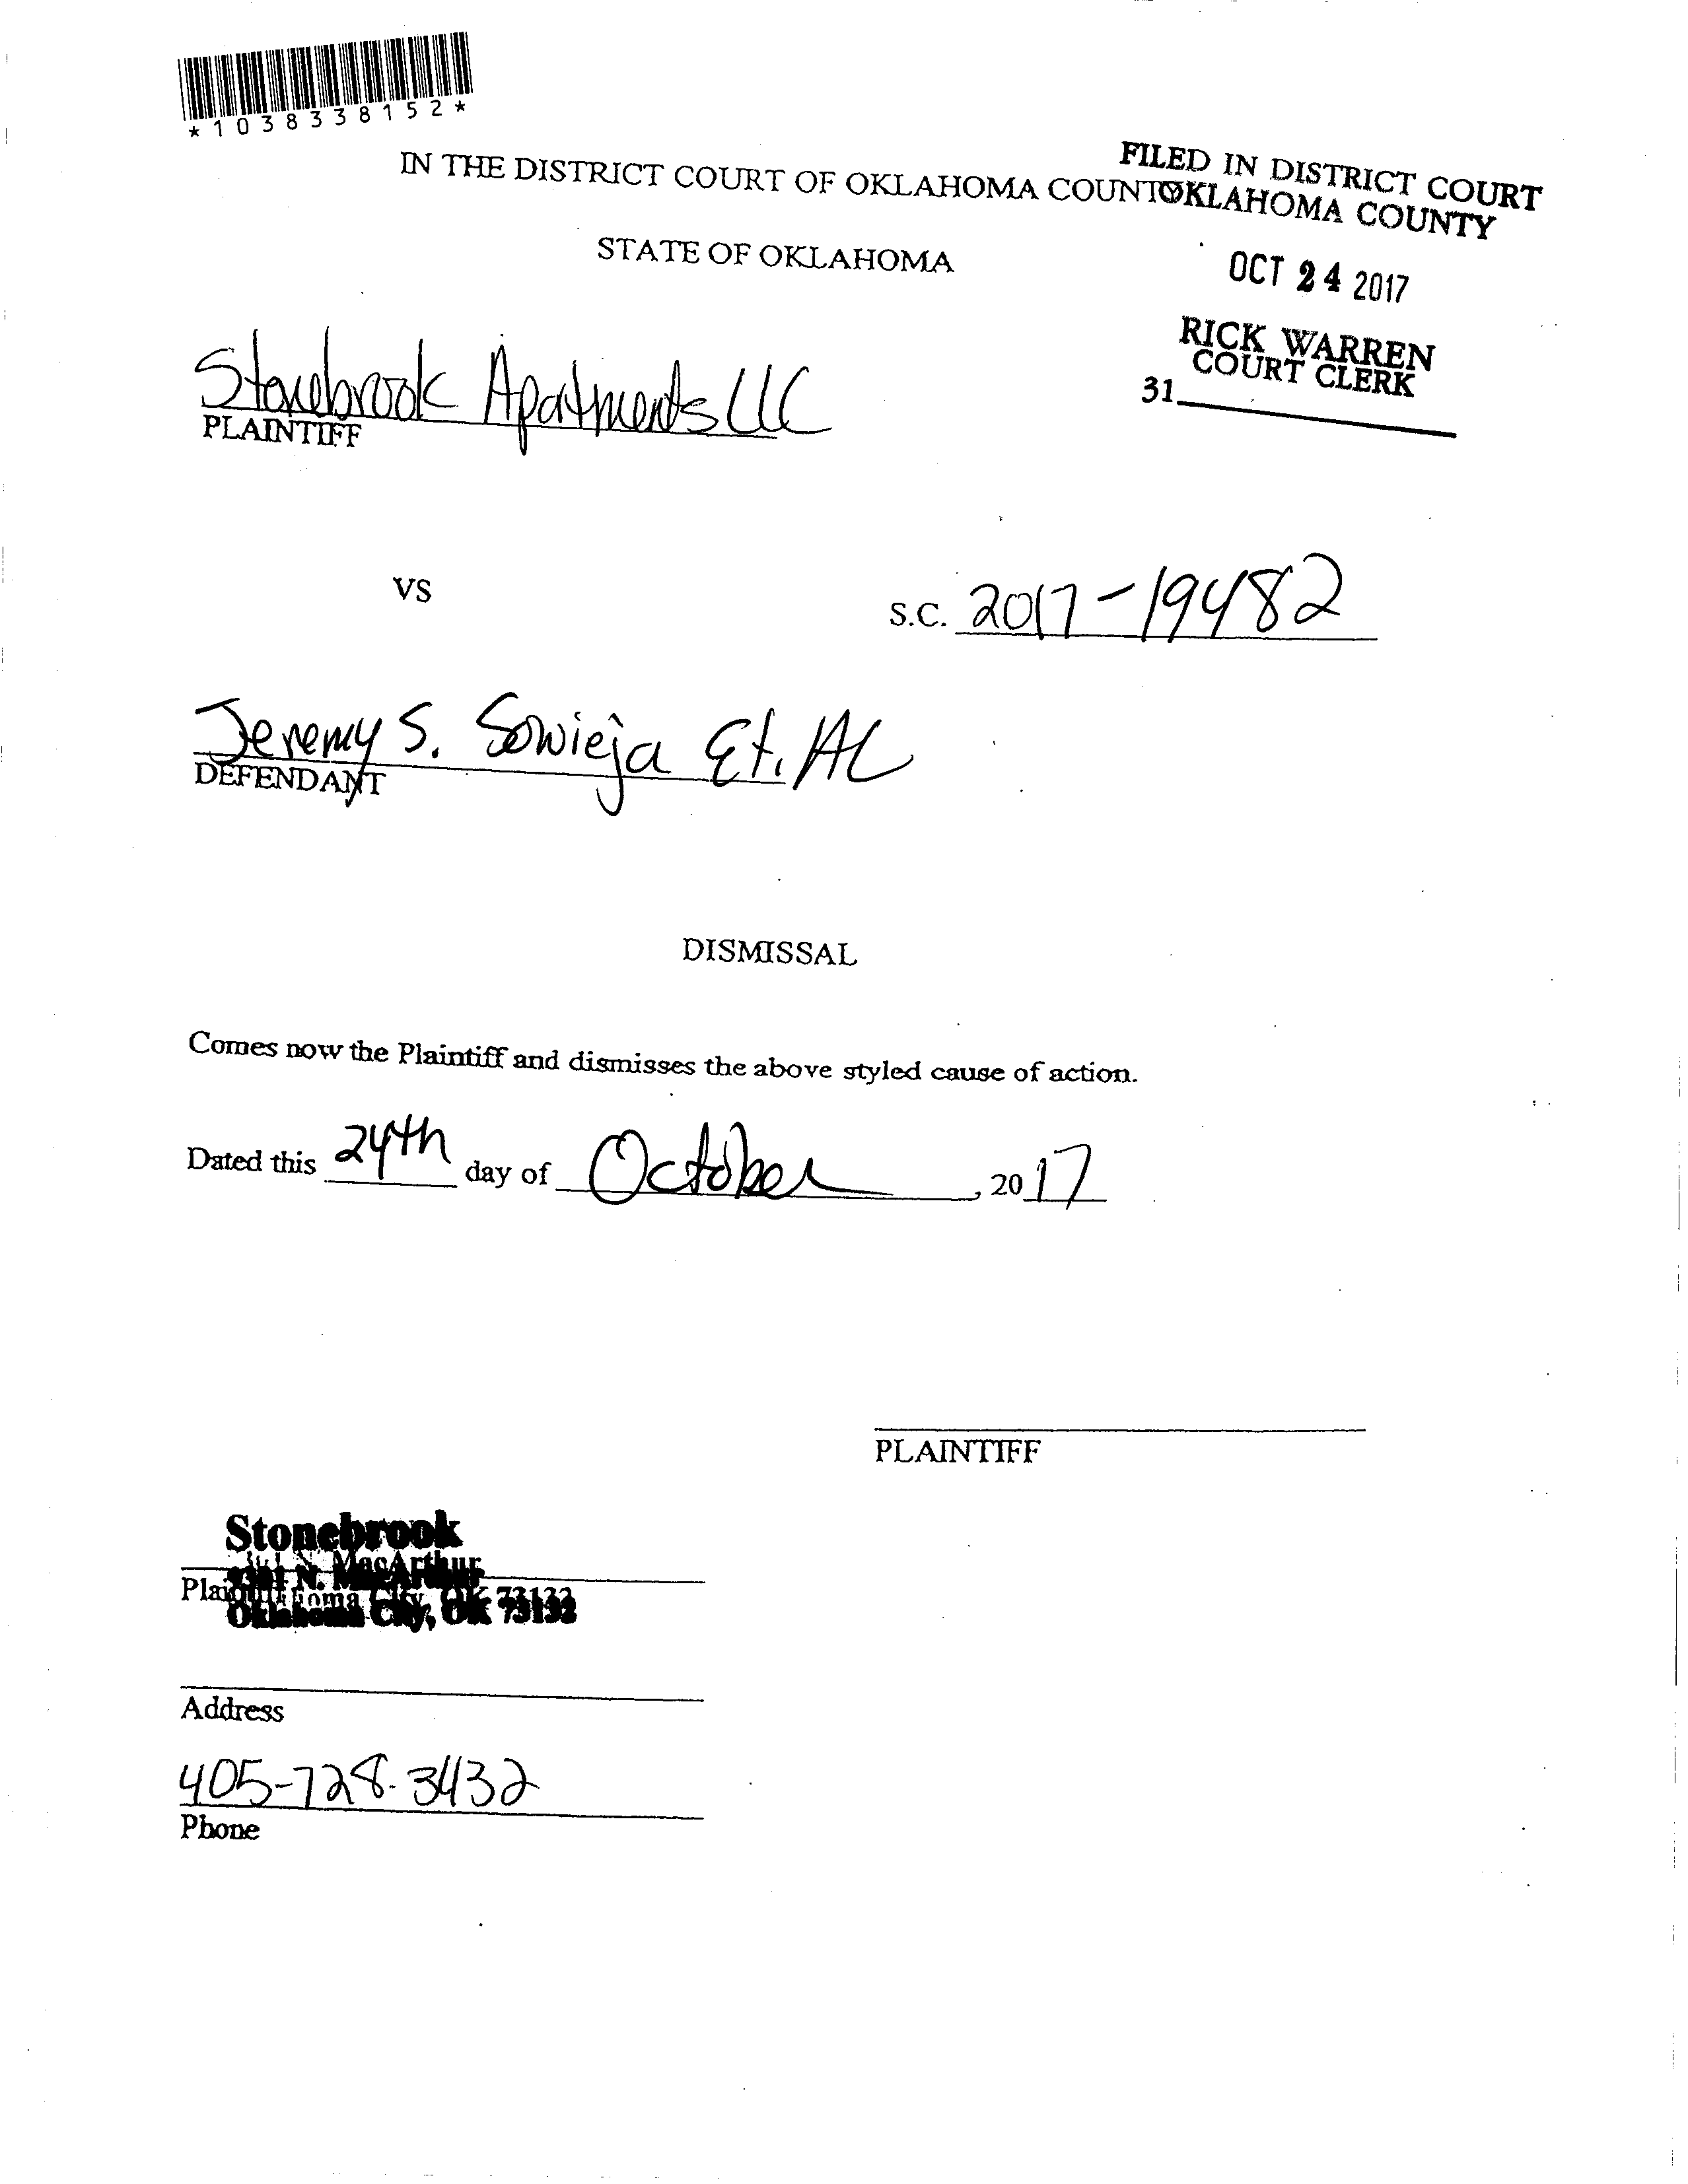 *1038338152*
FILED IN DISTRICT COURT
OKLAHOMA COUNTY
IN THE DISTRICT COURT OF OKLAHOMA COUNT
STATE OF OKLAHOMA
OCT 24 2017
RICK WARREN
COURT CLERK
31
Stonebrook Apartments LLC
PLAINTIFF
VS
S.C. 2017-19482
Jeremy S. Sowieja Et. AL
DEFENDANT
DISMISSAL
Comes now the Plaintiff and dismisses the above styled cause of action.
Dated this 24th day of October, 2017
PLAINTIFF
Stonebrook
N. MacArthur
Oklahoma City, OK 73132
Address
405-728-3432
Phone